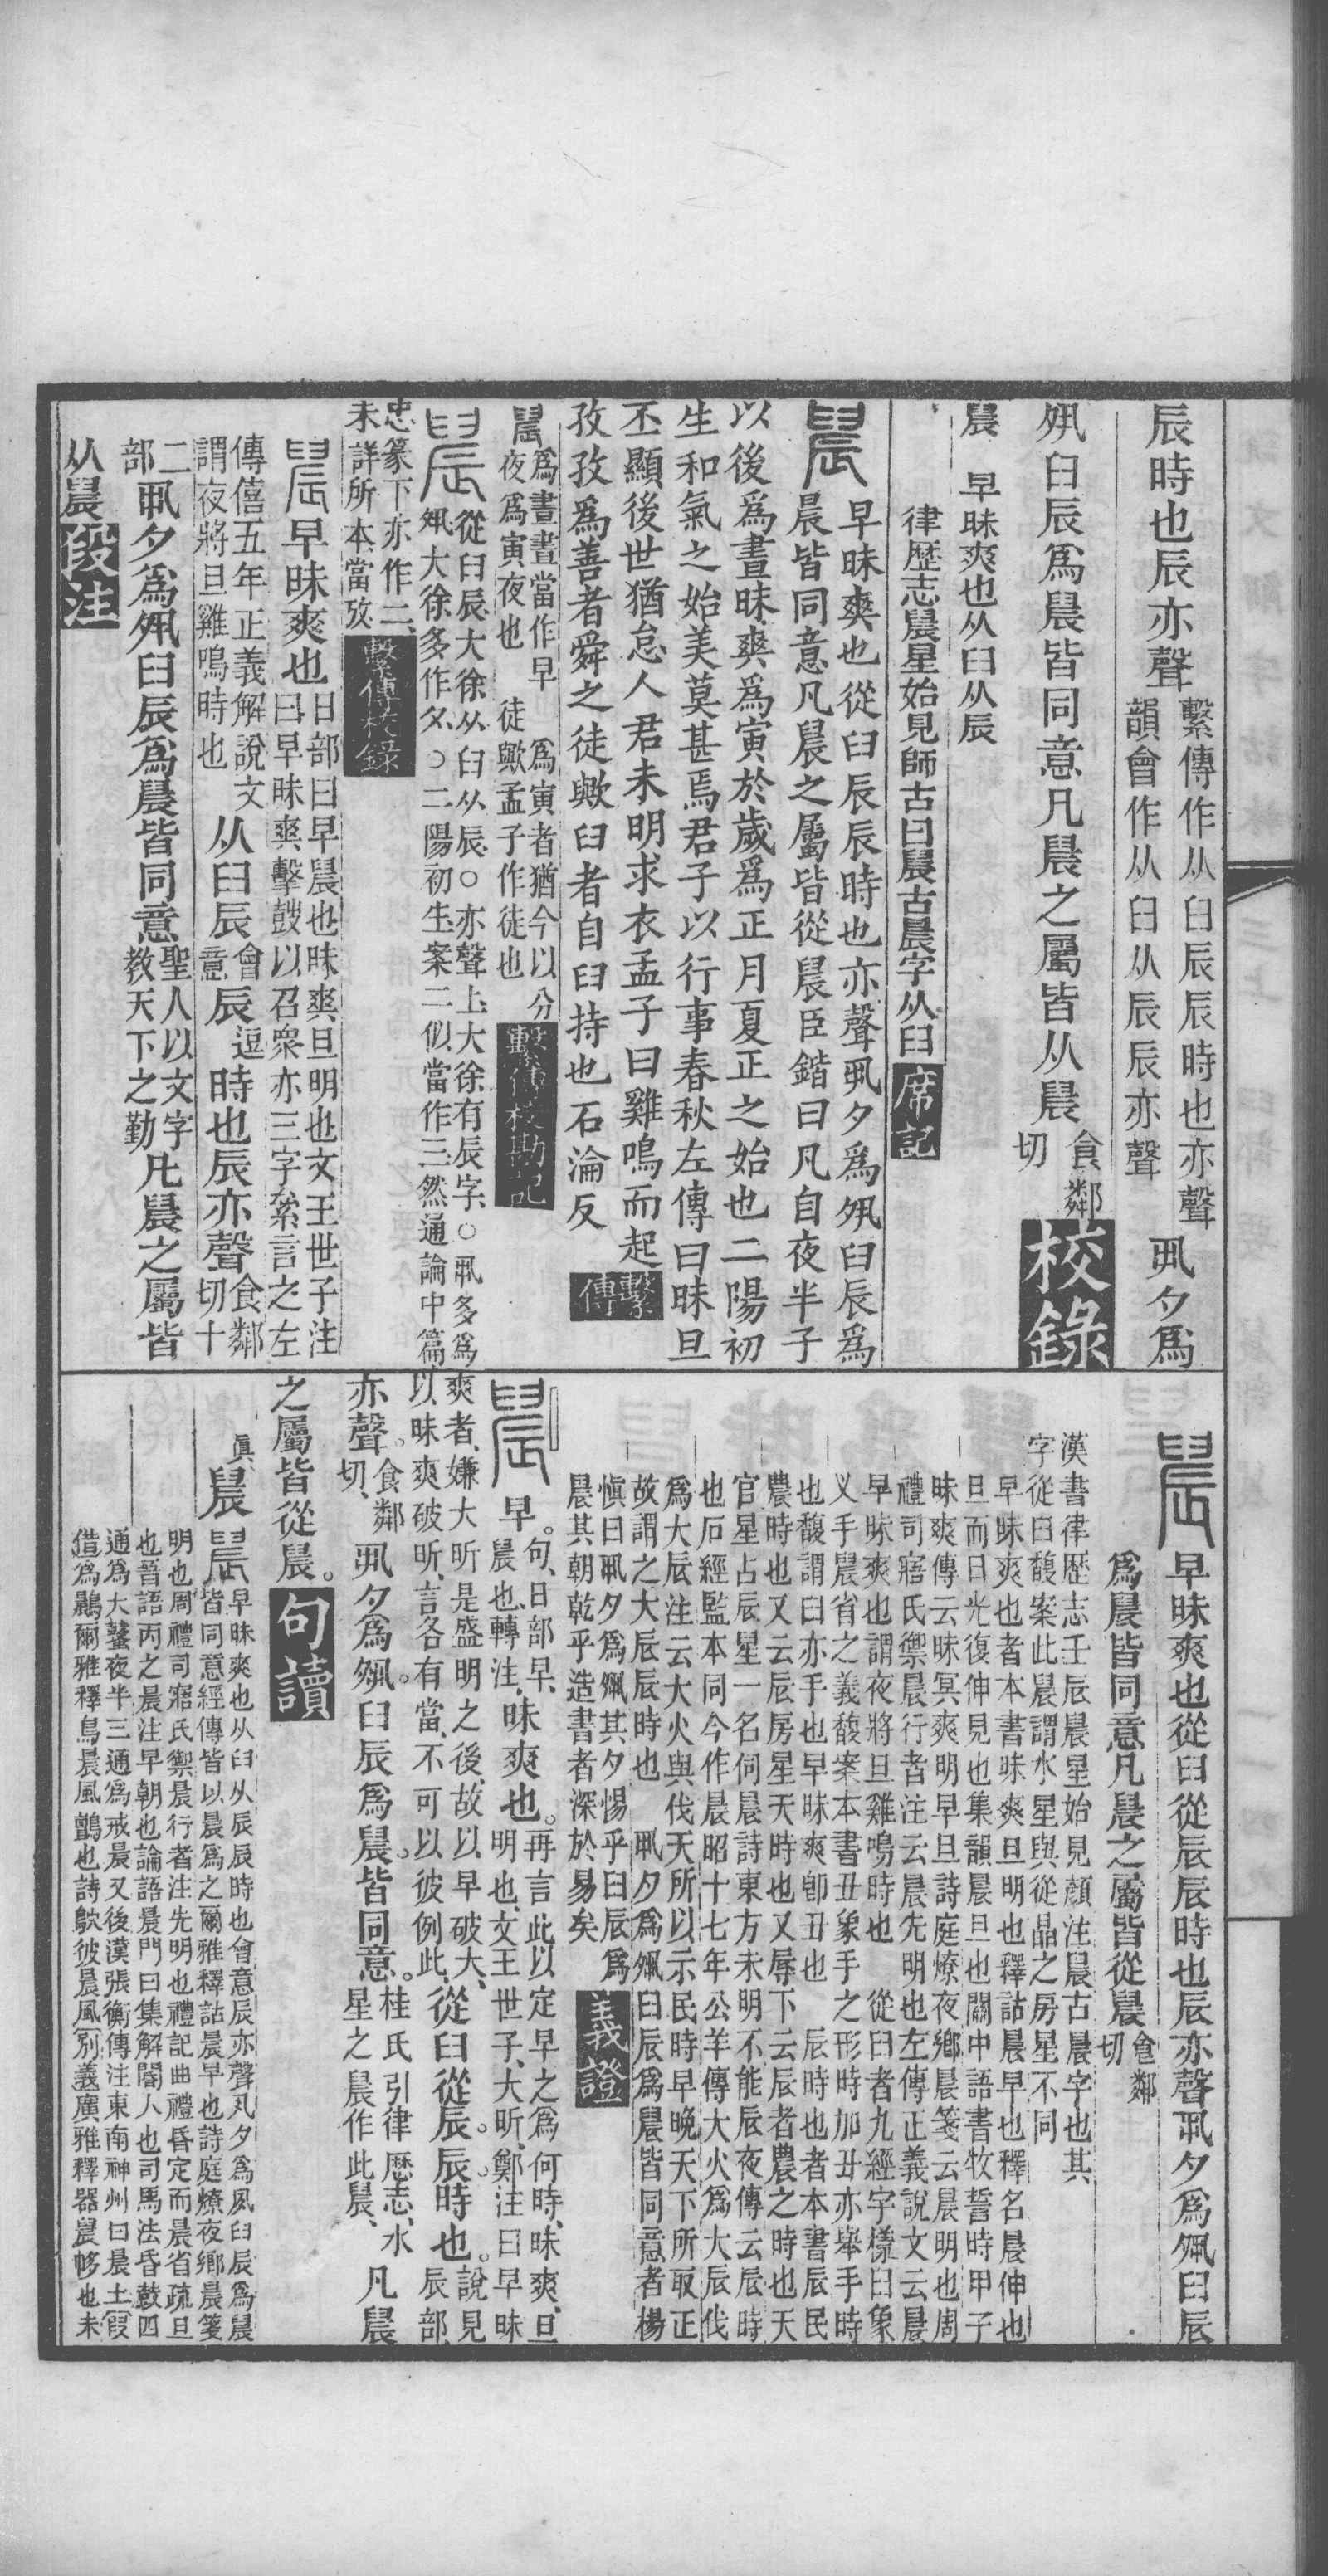 辰時也辰亦聲
繫傳作从𦥑辰辰時也亦聲
韻會作从𦥑从辰辰亦聲
𠃨夕爲
𡖊𦥑辰爲晨皆同意凡晨之屬皆从晨
食鄰
切
校錄
晨 早昧爽也从𦥑从辰
律歷志晨星始見師古曰晨古晨字从𦥑
席記
早昧爽也從𦥑辰辰時也亦聲𠃨夕爲𡖊𦥑辰爲
晨皆同意凡晨之屬皆從晨臣鍇曰凡自夜半子
以後爲晝昧爽爲寅於歲爲正月夏正之始也二陽初
生和氣之始美莫甚焉君子以行事春秋左傳曰昧旦
丕顯後世猶怠人君未明求衣孟子曰雞鳴而起
孜孜爲善者舜之徒歟𦥑者自𦥑持也石淪反
繫傳
晨
爲晝晝當作早 爲寅者猶今以 分
夜爲寅夜也 徒歟孟子作徒也
繫傳校勘記
晨
從𦥑辰大徐从𦥑从辰○亦聲上大徐有辰字○𠃨多爲
𡖊大徐多作夕○二陽初生案二似當作三然通論中篇
忠篆下亦作二
未詳所本當攷
繫傳校錄
晨早昧爽也
日部曰早晨也昧爽旦明也文王世子注
曰早昧爽擊鼓以召衆亦三字絫言之左
傳僖五年正義解說文
謂夜將旦雞鳴時也
从𦥑辰
會
意
辰
逗
時也辰亦聲
食鄰
切十
二
部
𠃨夕爲𡖊𦥑辰爲晨皆同意
聖人以文字
教天下之勤
凡晨之屬皆
从晨
段注
晨
早昧爽也從𦥑從辰辰時也辰亦聲𠃨夕爲𡖊𦥑辰
爲晨皆同意凡晨之屬皆從晨
食鄰
切
漢書律歷志壬辰晨星始見顏注晨古晨字也其
字從𦥑馥案此晨謂水星與從晶之房星不同
早昧爽也者本書昧爽旦明也釋詁晨早也釋名晨伸也
旦而日光復伸見也集韻晨旦也關中語書牧誓時甲子
昧爽傳云昧冥爽明早旦詩庭燎夜鄉晨箋云晨明也周
禮司寤氏禦晨行者注云晨先明也左傳正義說文云晨
早昧爽也謂夜將旦雞鳴時也 從𦥑者九經字樣𦥑象
叉手晨省之義馥案本書丑象手之形時加丑亦舉手時
也馥謂𦥑亦手也早昧爽卽丑也 辰時也者本書辰民
農時也又云辰房星天時也又辱下云辰者農之時也天
官星占辰星一名伺晨詩東方未明不能辰夜傳云辰時
也石經監本同今作晨昭十七年公羊傳大火爲大辰伐
爲大辰注云大火與伐天所以示民時早晚天下所取正
故謂之大辰辰時也 𠃨夕爲𡖊𦥑辰爲晨皆同意者楊
愼曰𠃨夕爲𡖊其夕惕乎𦥑辰爲
晨其朝乾乎造書者深於易矣
義證
晨
早
句日部早
晨也轉注
昧爽也
再言此以定早之爲何時昧爽旦
明也文王世子大昕鄭注曰早昧
爽者嫌大昕是盛明之後故以早破大
以昧爽破昕言各有當不可以彼例此
從𦥑從辰辰時也
說見
辰部
亦聲
食鄰
切
𠃨夕爲𡖊𦥑辰爲晨皆同意
桂氏引律歷志水
星之晨作此晨
凡晨
之屬皆從晨
句讀
眞
晨
早昧爽也从𦥑从辰辰時也會意辰亦聲𠃨夕爲夙𦥑辰爲晨
皆同意經傳皆以晨爲之爾雅釋詁晨早也詩庭燎夜鄉晨箋
明也周禮司寤氏禦晨行者注先明也禮記曲禮昏定而晨省疏旦
也晉語丙之晨注早朝也論語晨門曰集解閽人也司馬法昏鼓四
通爲大鼜夜半三通爲戒晨又後漢張衡傳注東南神州曰晨土叚
借爲鷐爾雅釋鳥晨風鸇也詩鴥彼晨風別義廣雅釋器晨㡋也未